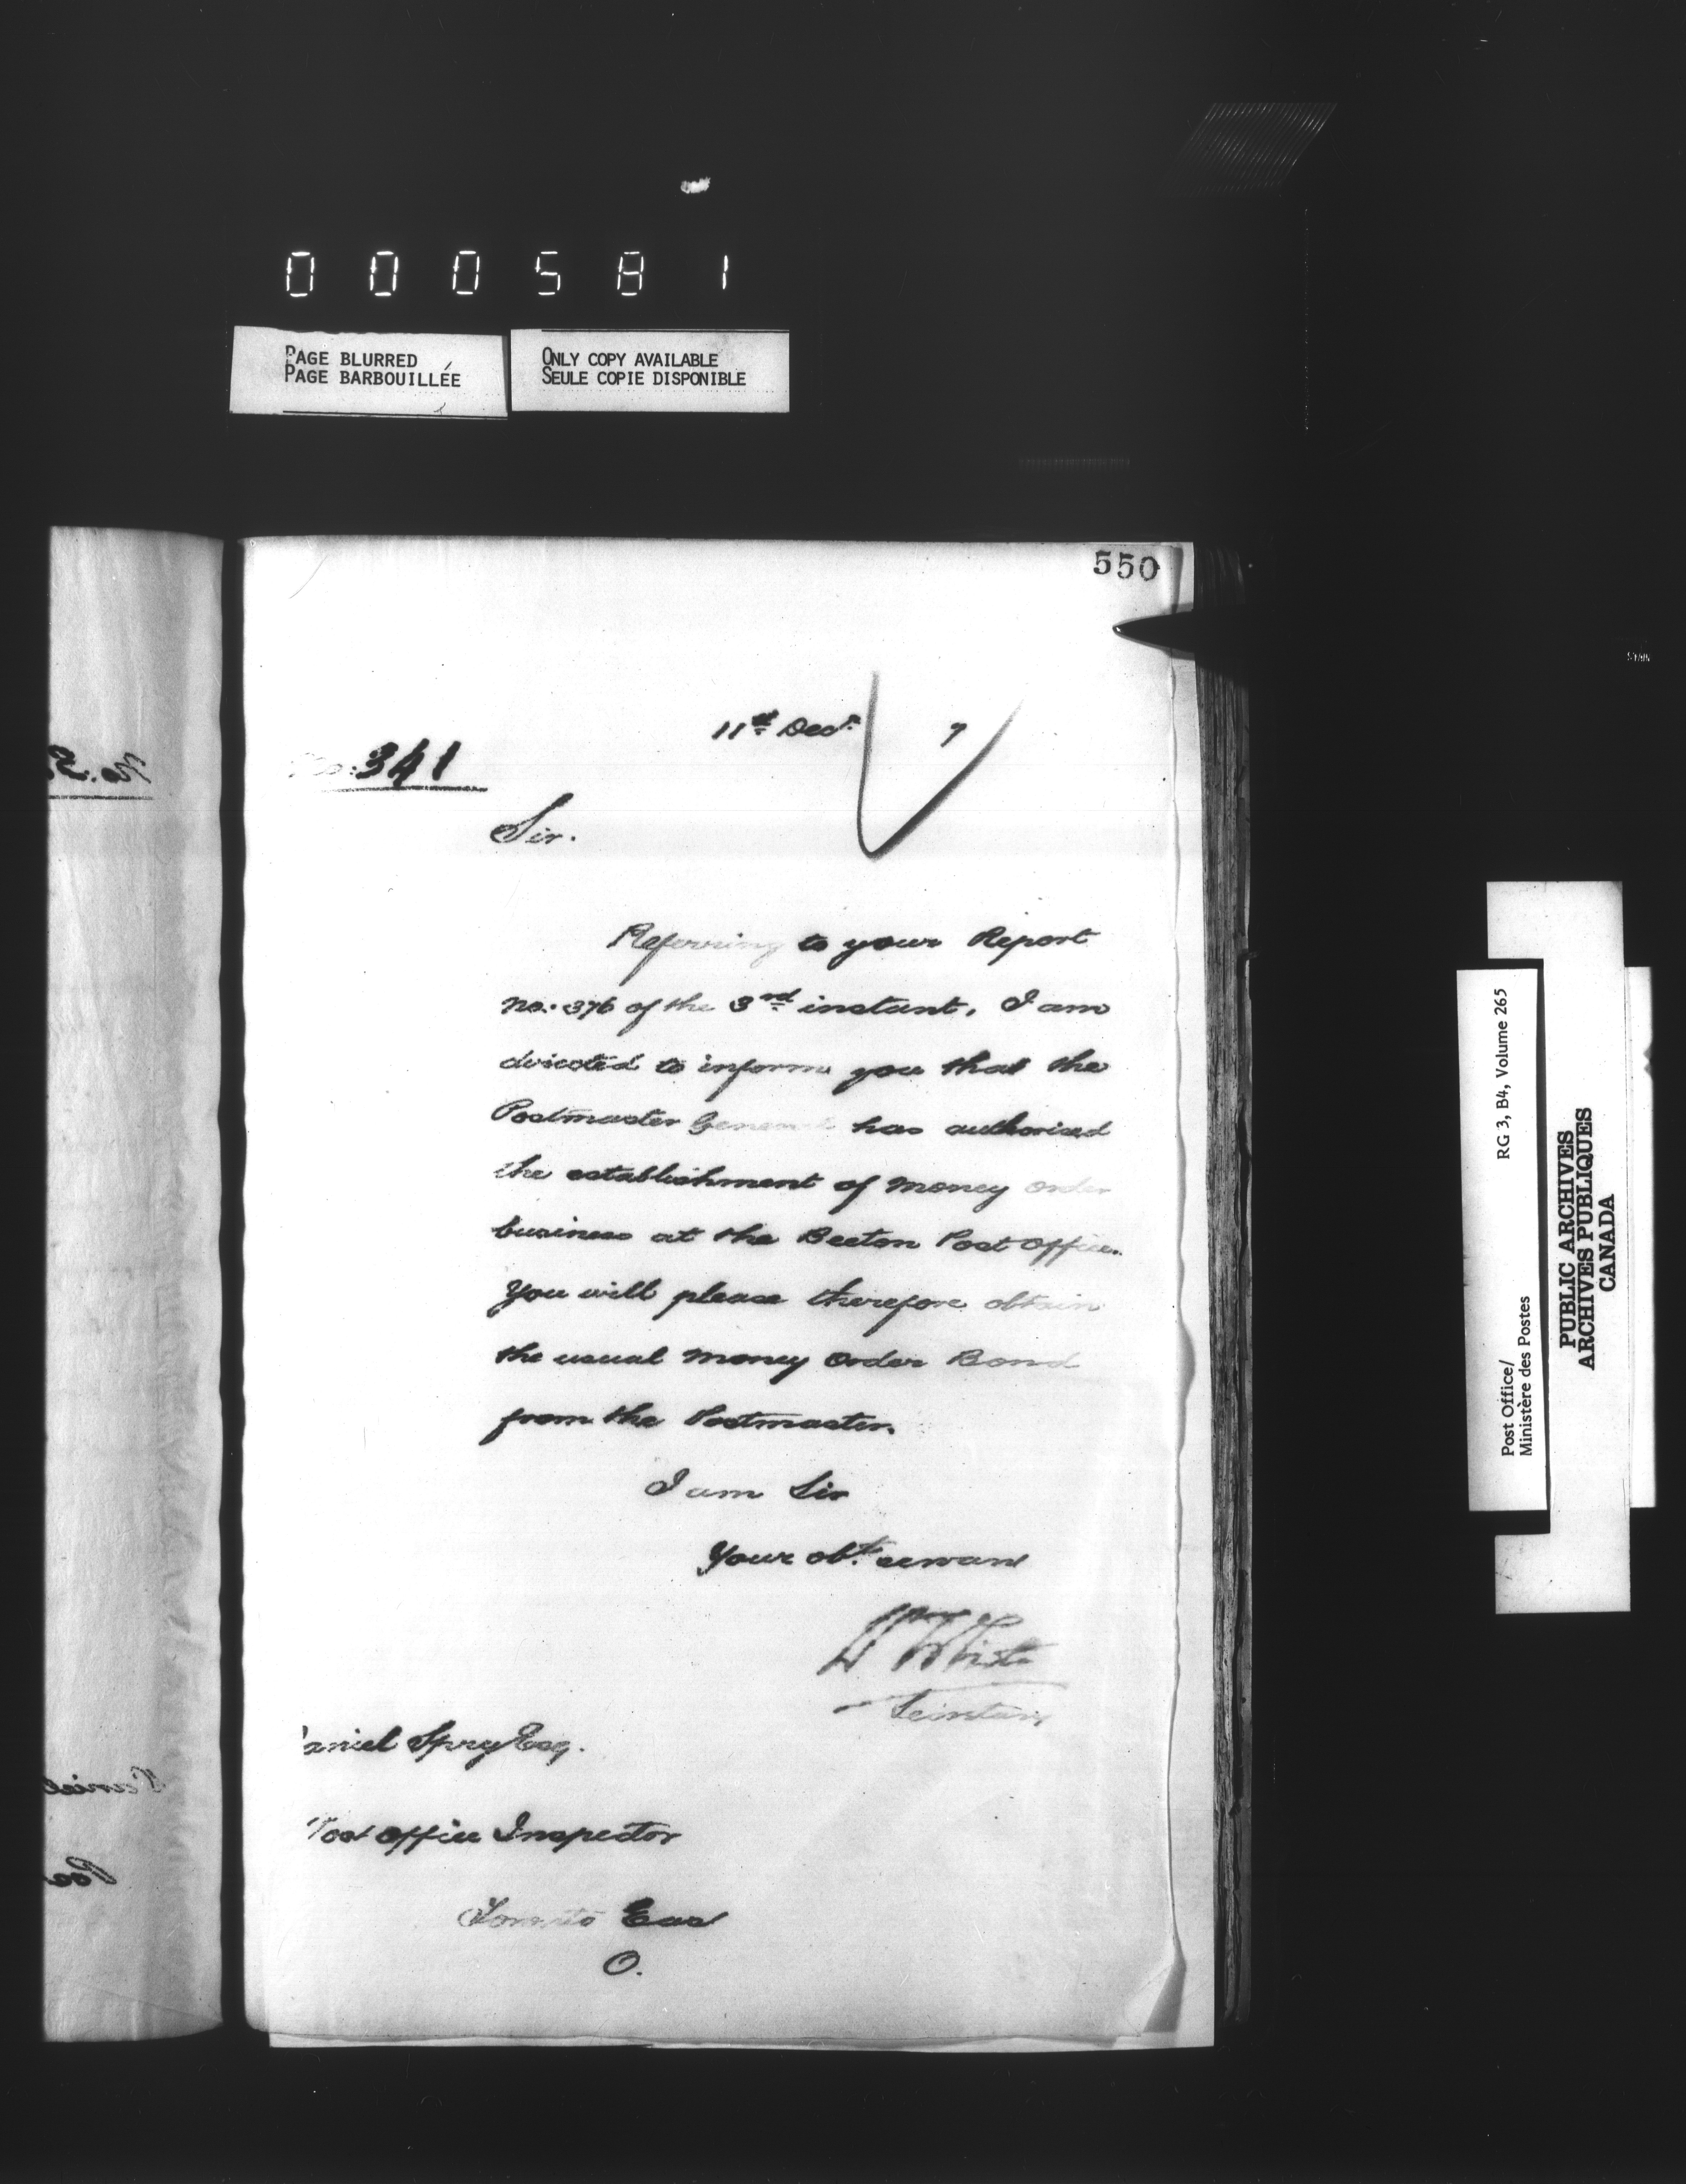 000581
PAGE BLURRED
PAGE BARBOUILLÉE
ONLY COPY AVAILABLE
SEULE COPIE DISPONIBLE
550
11th Decr. 7
No. 341
Sir.
Referring to your Report
No. 376 of the 3rd instant, I am
directed to inform you that the
Postmaster General has authorised
the establishment of Money Order
business at the Beeton Post Office.
You will please therefore obtain
the usual Money Order Bond
from the Postmaster.
I am Sir
Your obt. servant
Wm White
Secretary
Daniel Spry Esq.
Post Office Inspector
Toronto East
O.
Post Office/ RG 3, B4, Volume 265
Ministère des Postes
PUBLIC ARCHIVES
ARCHIVES PUBLIQUES
CANADA